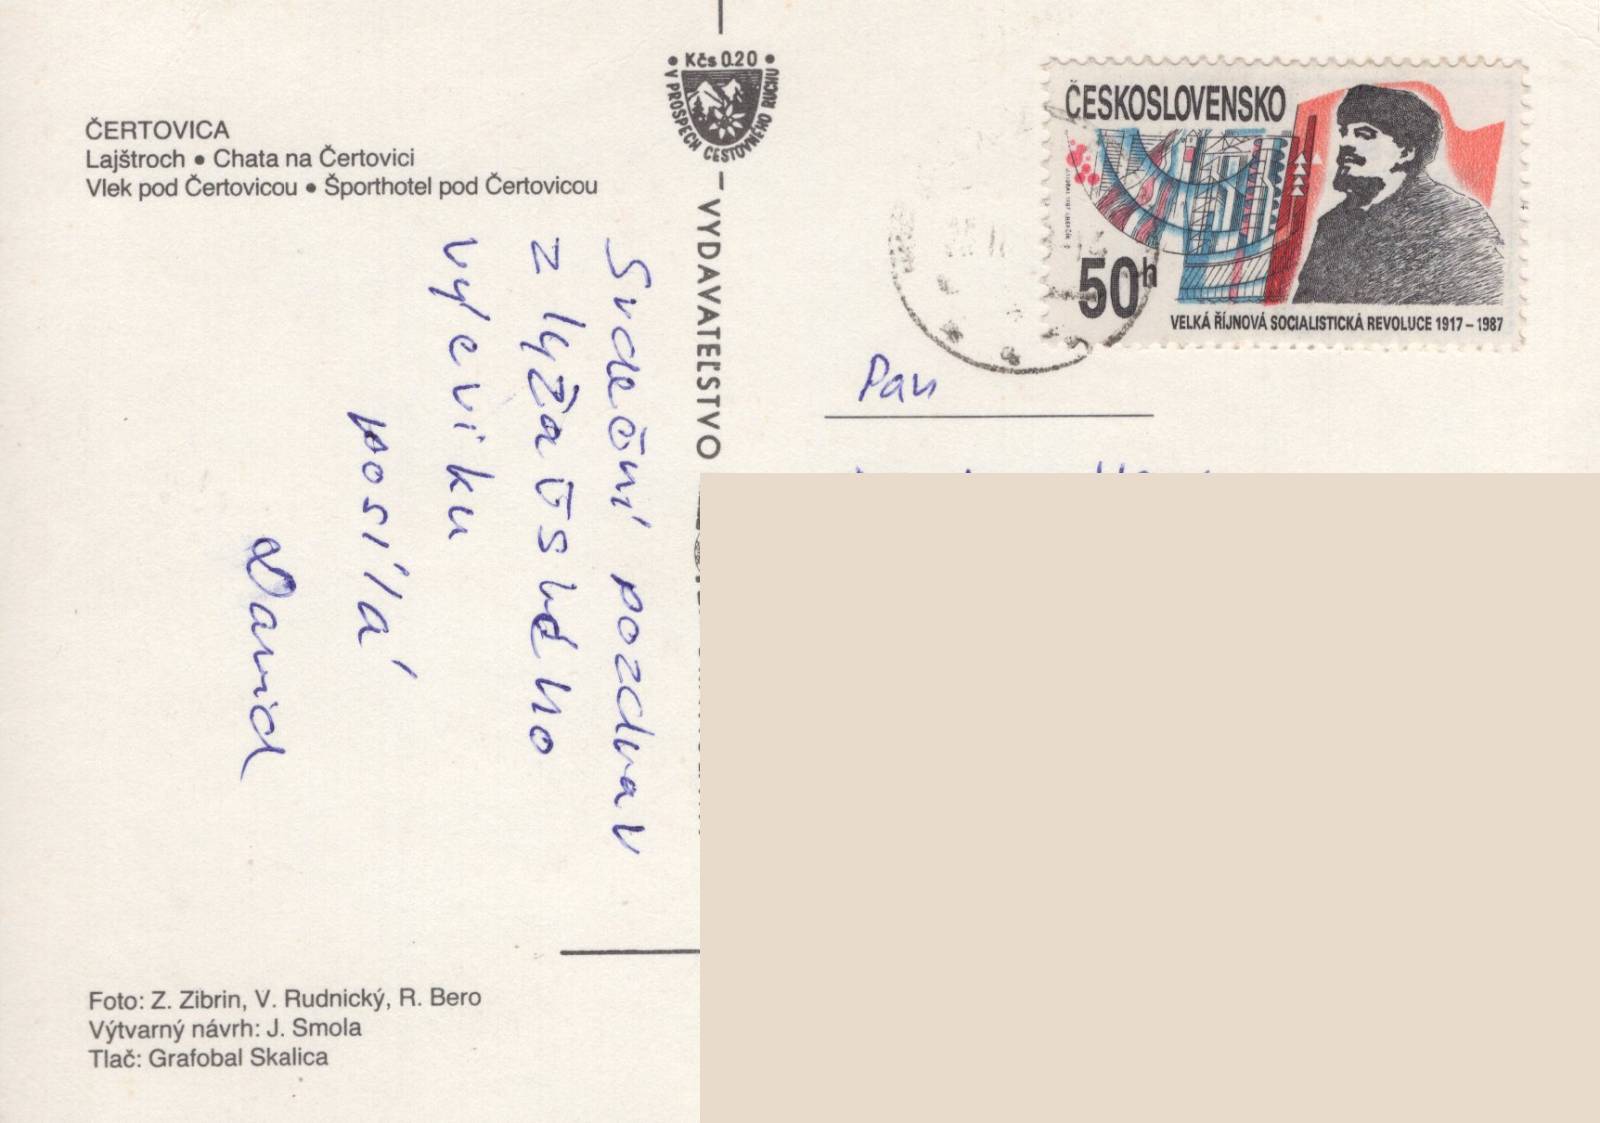 ČERTOVICA
Lajštroch • Chata na Čertovici
Vlek pod Čertovicou • Športhotel pod Čertovicou
• Kčs 0.20 •
V PROSPECH CESTOVNÉHO RUCHU
VYDAVATEĽSTVO
ČESKOSLOVENSKO
50h
VELKÁ ŘÍJNOVÁ SOCIALISTICKÁ REVOLUCE 1917 – 1987
Pan
Srdeční pozdrav
z lyžařského
výcviku
posílá
David
Foto: Z. Zibrin, V. Rudnický, R. Bero
Výtvarný návrh: J. Smola
Tlač: Grafobal Skalica